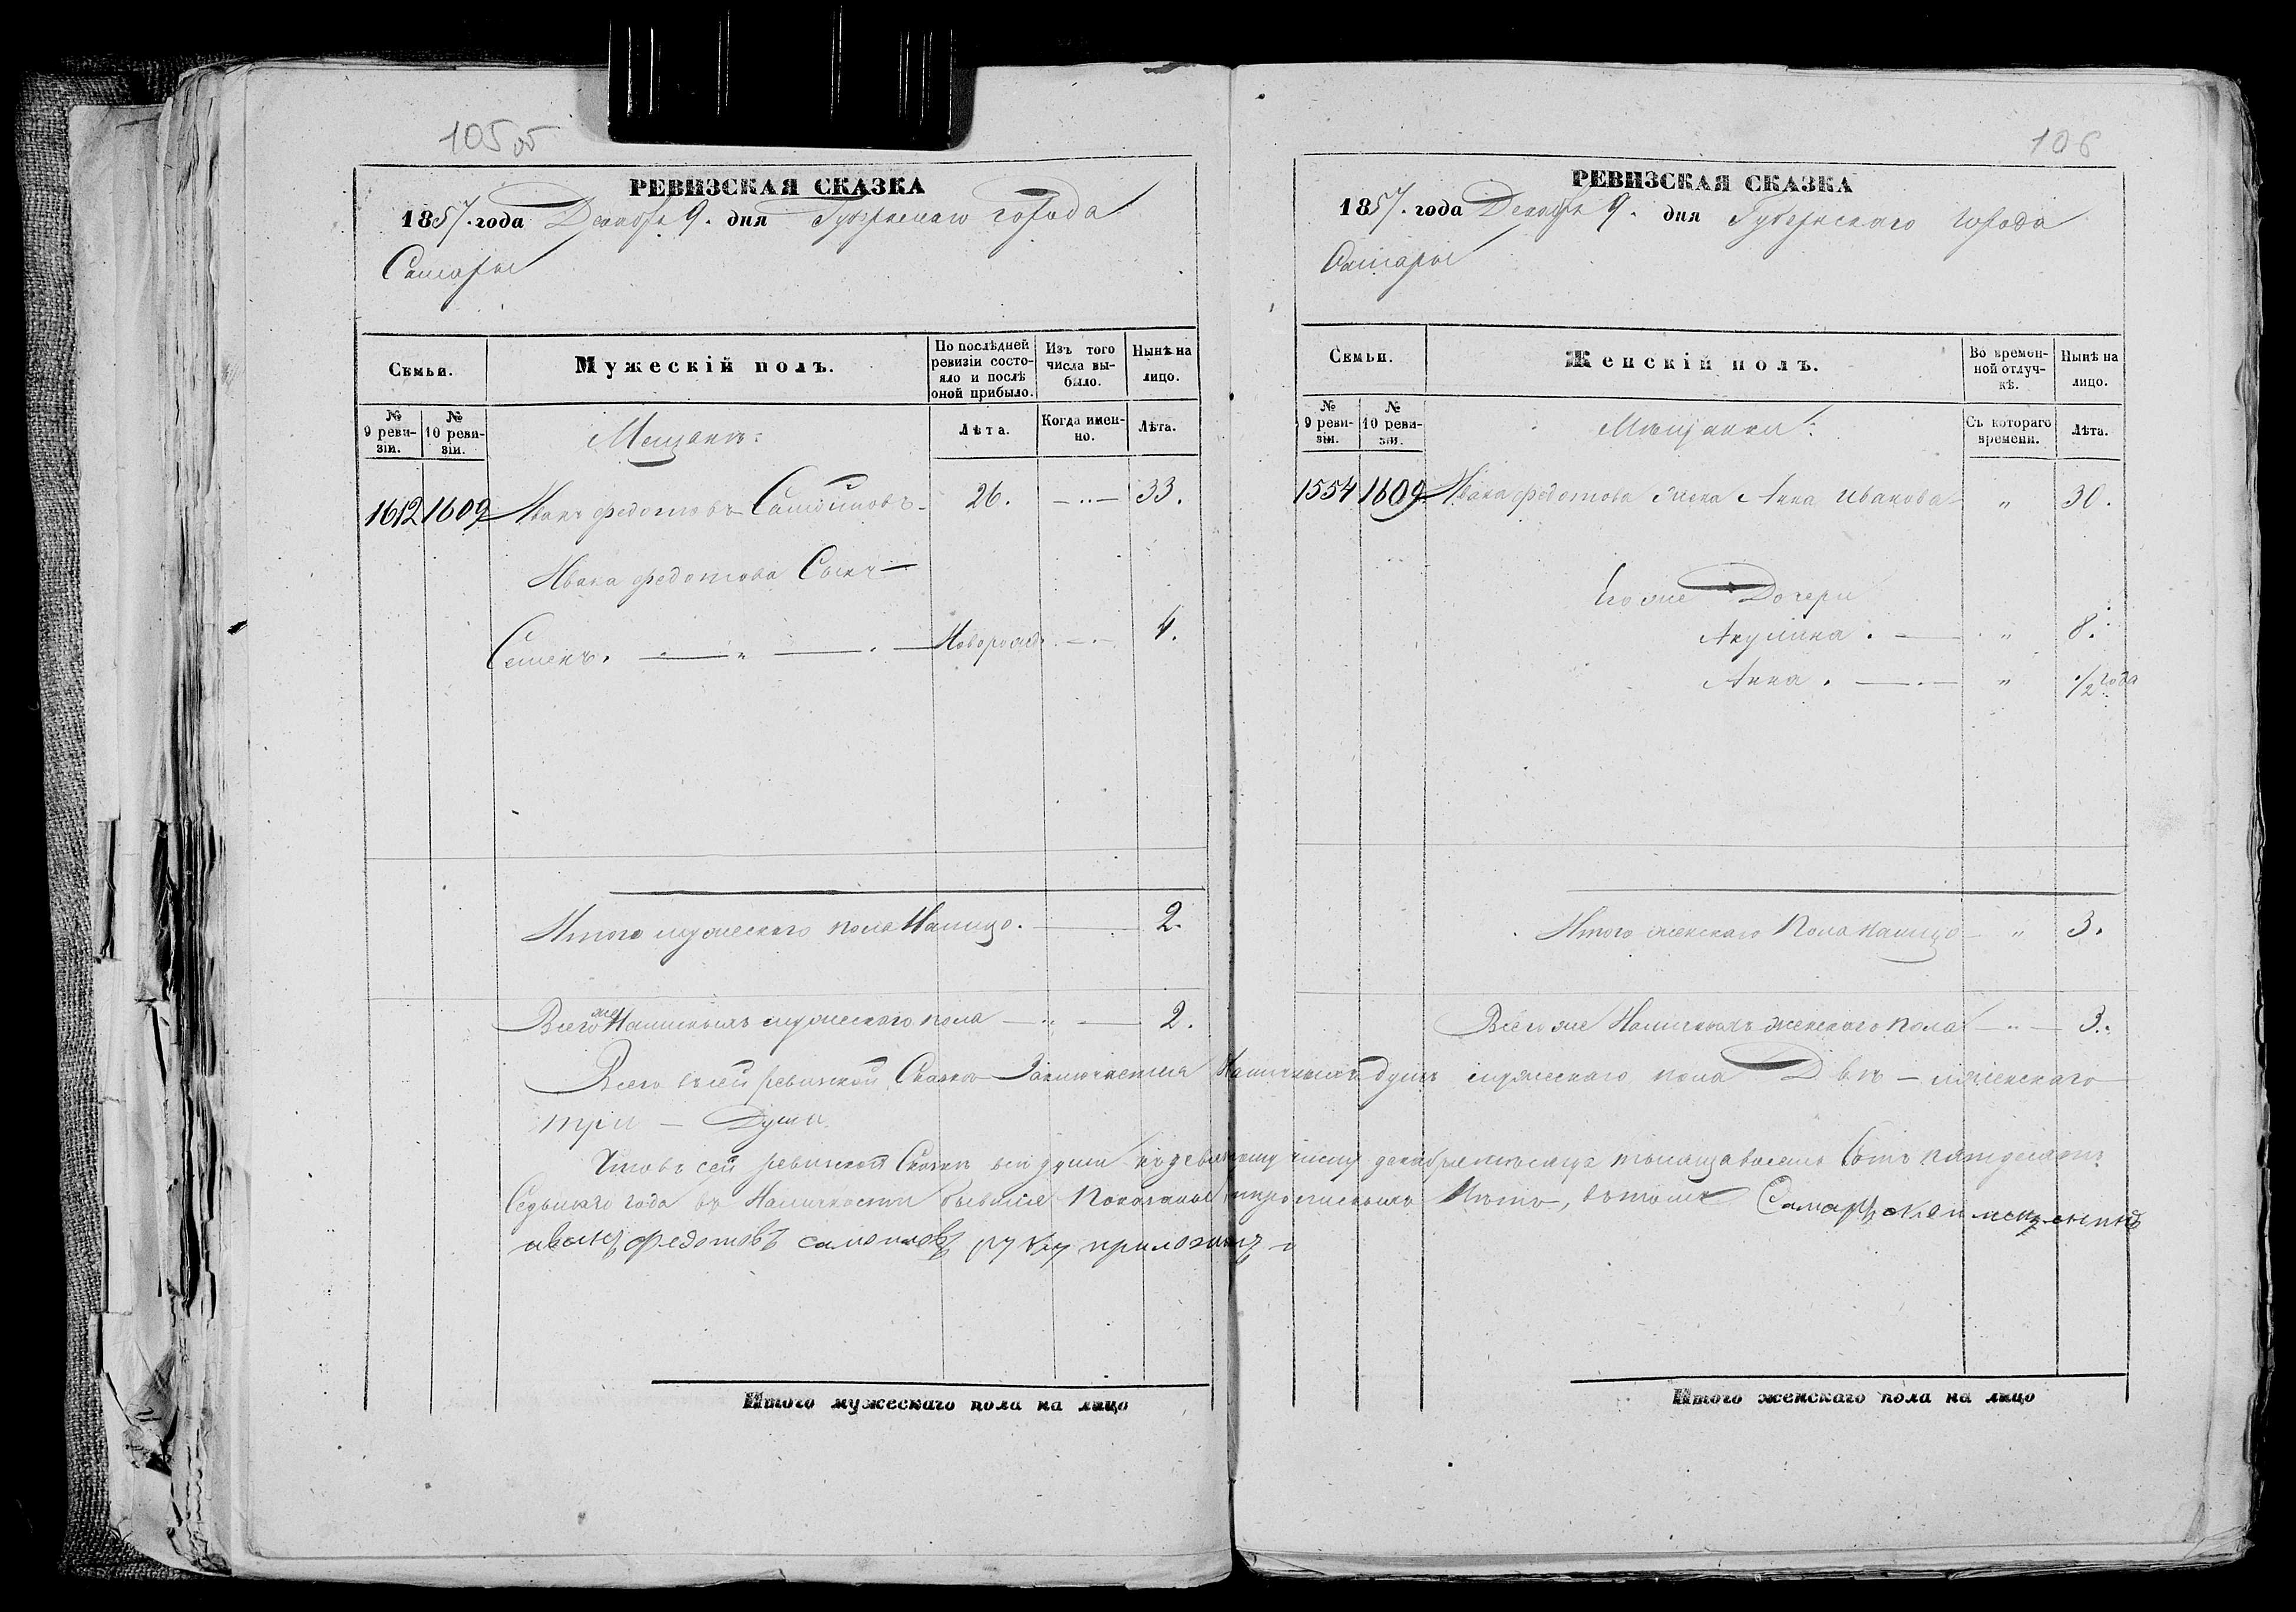 105 об
РЕВИЗСКАЯ СКАЗКА
1857. года Декабря 9. дня Губернскаго города
Самары
Семьи.
Мужескій полъ.
По послѣдней ревизіи состояло и послѣ оной прибыло.
Изъ того числа выбыло.
Нынѣ на лицо.
№ 9 ревизіи.
№ 10 ревизіи.
Мещанъ:
Лѣта.
Когда именно.
Лѣта.
1612 1609 Иванъ Федотовъ 26. — 33.
Ивана Федотова Сынъ
Семенъ. Новорожд. — 4.
Итого мужескаго пола Налицо. — 2.
Всего же Наличныхъ мужескаго пола — 2.
Всего въ сей ревизской Сказке Заключается Наличныхъ душъ мужескаго пола Двѣ — и женскаго
три — Души.
Что въ сей ревизской Сказке все души къ девятому числу декабря месяца тысяща восемь Сотъ пятдесятъ
Седьмаго года въ Наличности бывшие Показаны и прописныхъ Нѣтъ, в томъ Самарской мещенинъ
иванъ федотовъ руку приложилъ
Итого мужескаго пола на лицо
106
РЕВИЗСКАЯ СКАЗКА
1857. года Декабря 9. дня Губернскаго города
Самары
Семьи.
Женскій полъ.
Во временной отлучкѣ.
Нынѣ на лицо.
№ 9 ревизіи.
№ 10 ревизіи.
Мѣщанки:
Съ котораго времени.
Лѣта.
1554 1609 Ивана Федотова жена Анна Иванова " 30.
Его же Дочери
Акулина. — " 8.
Анна. — " 1/2 года
Итого женскаго Пола налицо — " 3.
Всего же Наличныхъ женскаго пола — 3.
Итого женскаго пола на лицо